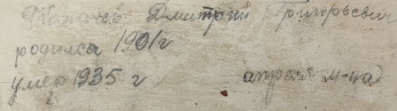 Дмитрий Григорьевич
родился 1901 г
умер 1935 г апреля м-ца